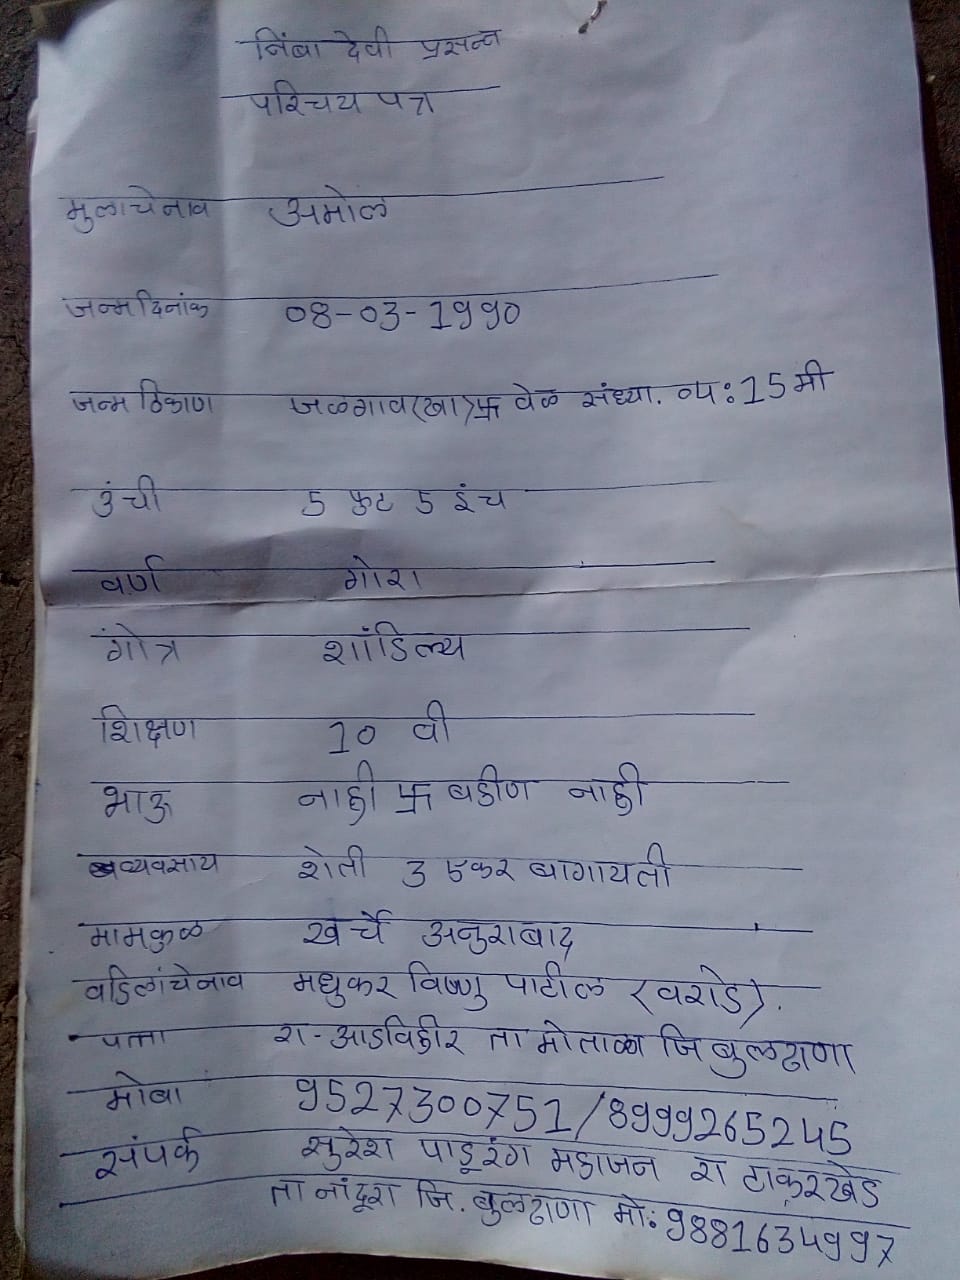 निंबा देवी प्रसन्न
परिचय पत्र
मुलाचे नाव अमोल
जन्म दिनांक 08-03-1990
जन्म ठिकाण जळगाव (खा) 卐 वेळ संध्या. ०५:15 मी
उंची 5 फुट 5 इंच
वर्ण गोरा
गोत्र शांडिल्य
शिक्षण 10 वी
भाऊ नाही 卐 बहीण नाही
व्यवसाय शेती 3 एकर बागायती
मामकुळ खर्चे अनुराबाद
वडिलांचे नाव मधुकर विष्णु पाटील (वराडे).
पत्ता रा-आडविहीर ता मोताळा जि बुलढाणा
मोबा 9527300751/8999265245
संपर्क सुरेश पाडूरंग महाजन रा टाकरखेड
ता नांदूरा जि. बुलढाणा मो: 9881634997